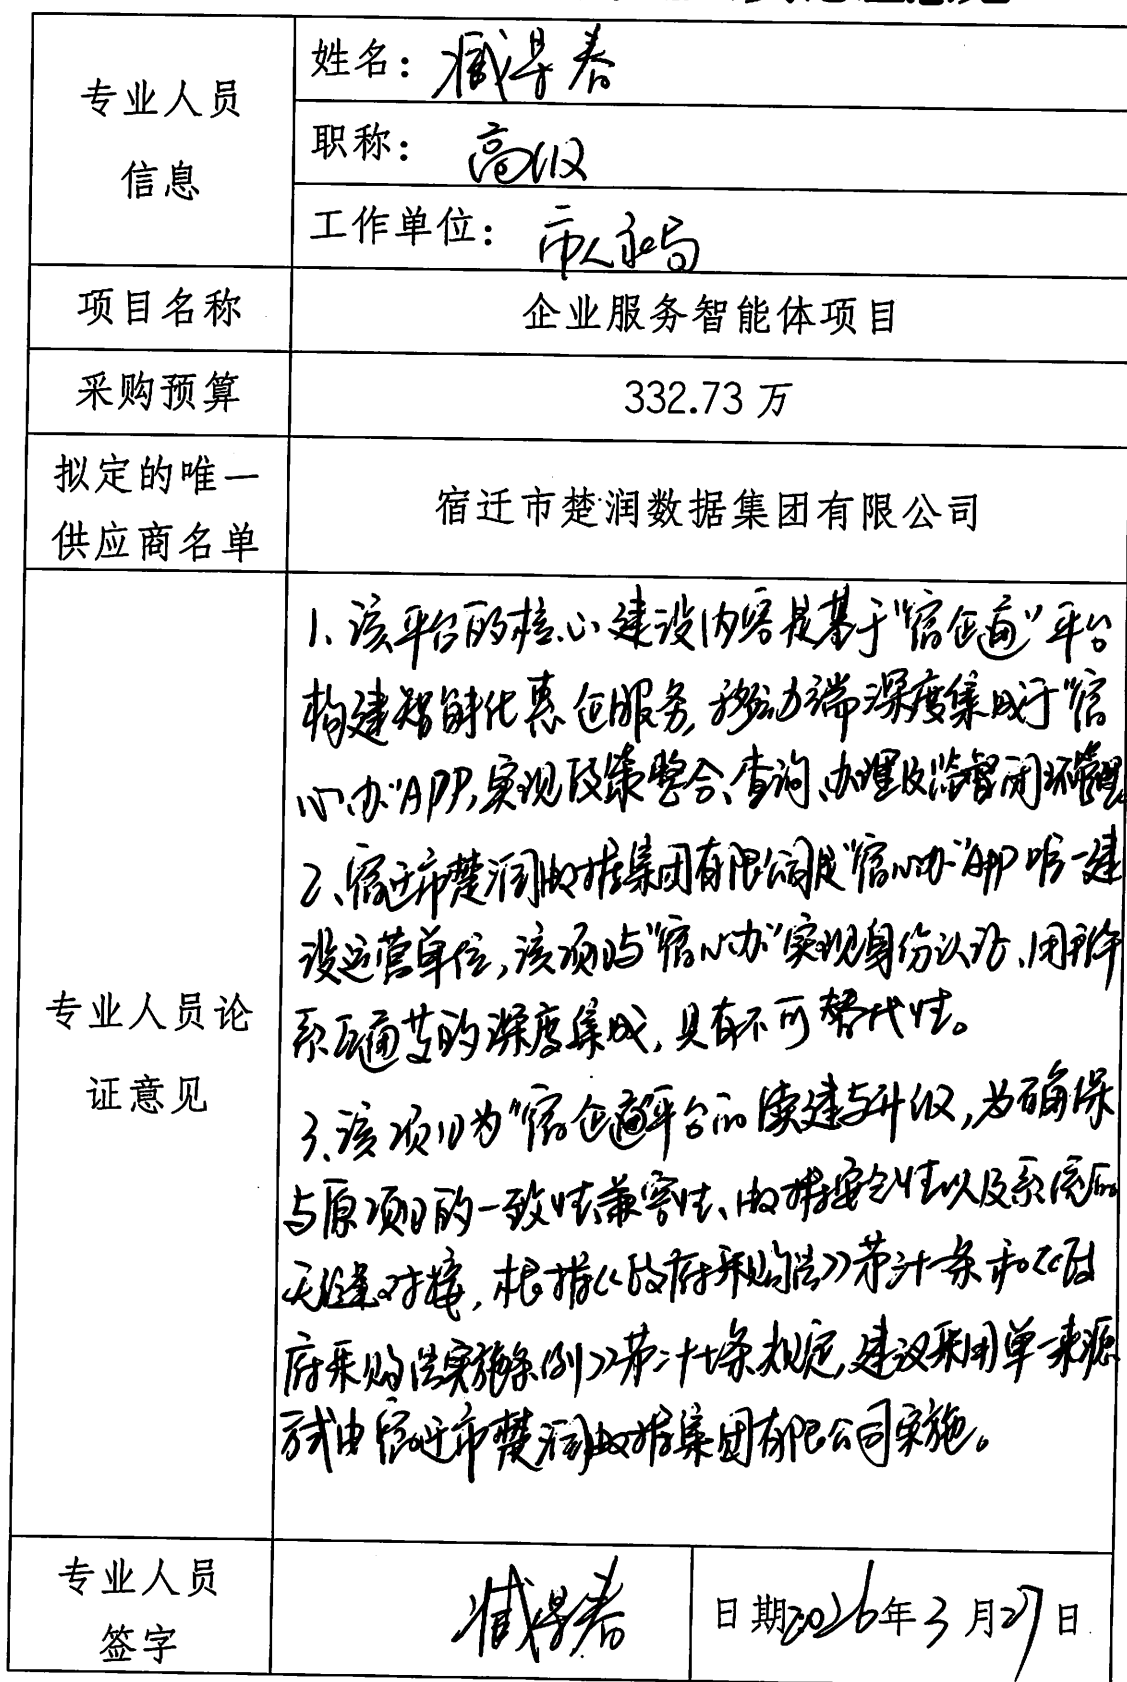 专业人员
信息
姓名：臧得春
职称：高级
工作单位：市人社局
项目名称
企业服务智能体项目
采购预算
332.73 万
拟定的唯一
供应商名单
宿迁市楚润数据集团有限公司
专业人员论
证意见
1、该平台的核心建设内容是基于“宿企通”平台
构建智能化惠企服务，移动端深度集成于“宿
心办”APP，实现政策整合、查询、办理及监督闭环管理。
2、宿迁市楚润数据集团有限公司是“宿心办”APP唯一建
设运营单位，该项目与“宿心办”实现身份认证、用户体
系互通等的深度集成，具有不可替代性。
3、该项目为“宿企通”平台的续建与升级，为确保
与原项目的一致性、兼容性、数据安全性以及系统的
无缝对接，根据《政府采购法》第卅一条和《政
府采购法实施条例》第二十七条规定，建议采用单一来源
方式由宿迁市楚润数据集团有限公司实施。
专业人员
签字
臧得春
日期2026年3月27日